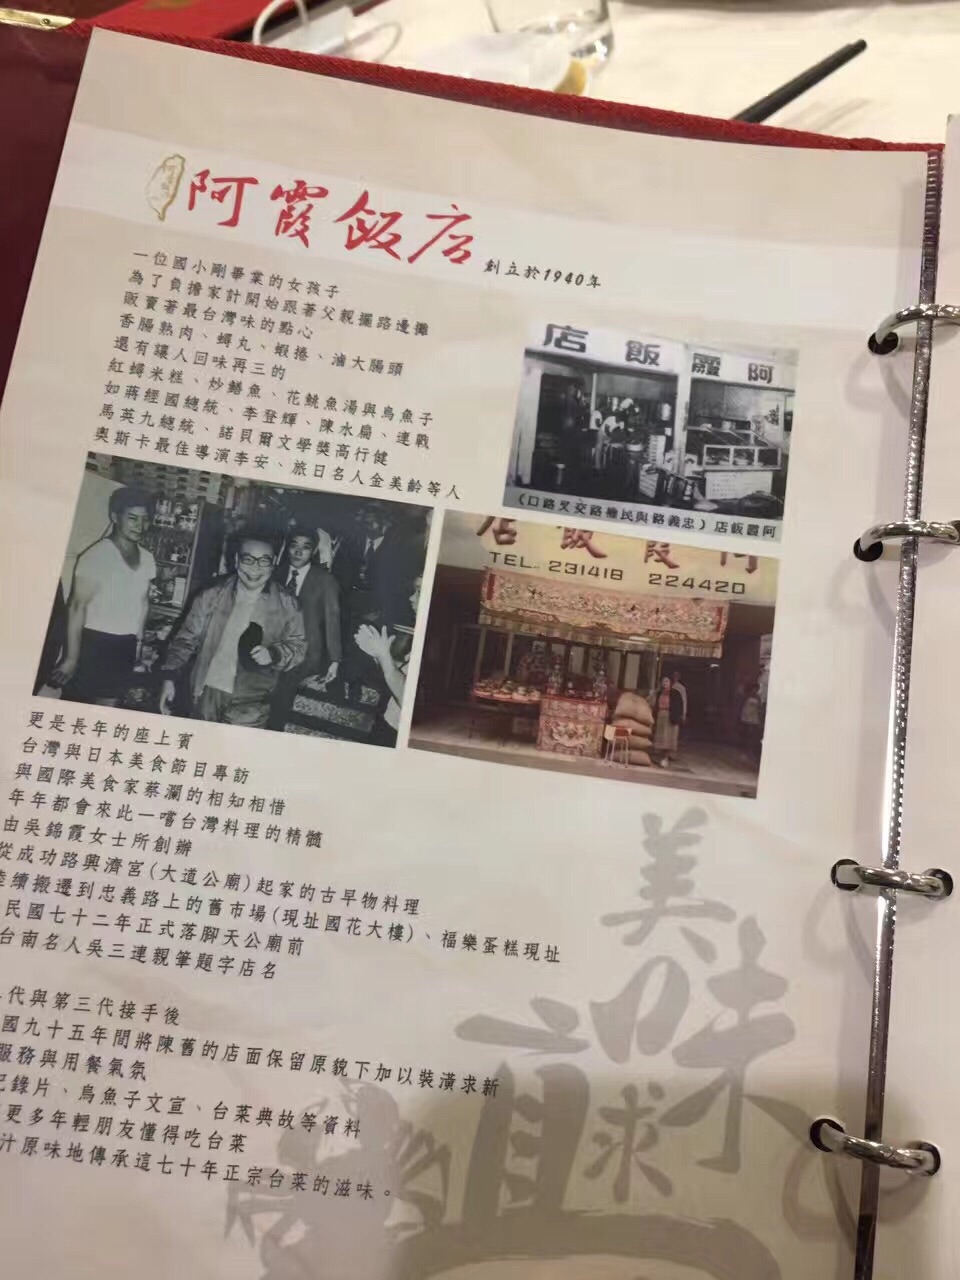 阿霞飯店 創立於1940年
一位國小剛畢業的女孩子
為了負擔家計開始跟著父親擺路邊攤
販賣著最台灣味的點心
香腸熟肉、蟳丸、蝦捲、滷大腸頭
還有讓人回味再三的
紅蟳米糕、炒鱔魚、花跳魚湯與烏魚子
如蔣經國總統、李登輝、陳水扁、連戰
馬英九總統、諾貝爾文學獎高行健
奧斯卡最佳導演李安、旅日名人金美齡等人
店飯霞阿
(口路叉交路權民與路義忠)店飯霞阿
店飯霞阿
TEL. 231418 224420
更是長年的座上賓
台灣與日本美食節目專訪
與國際美食家蔡瀾的相知相惜
年年都會來此一嚐台灣料理的精髓
由吳錦霞女士所創辦
從成功路興濟宮(大道公廟)起家的古早物料理
陸續搬遷到忠義路上的舊市場(現址國花大樓)、福樂蛋糕現址
民國七十二年正式落腳天公廟前
台南名人吳三連親筆題字店名
代與第三代接手後
國九十五年間將陳舊的店面保留原貌下加以裝潢求新
服務與用餐氣氛
記錄片、烏魚子文宣、台菜典故等資料
更多年輕朋友懂得吃台菜
汁原味地傳承這七十年正宗台菜的滋味。
美味
求